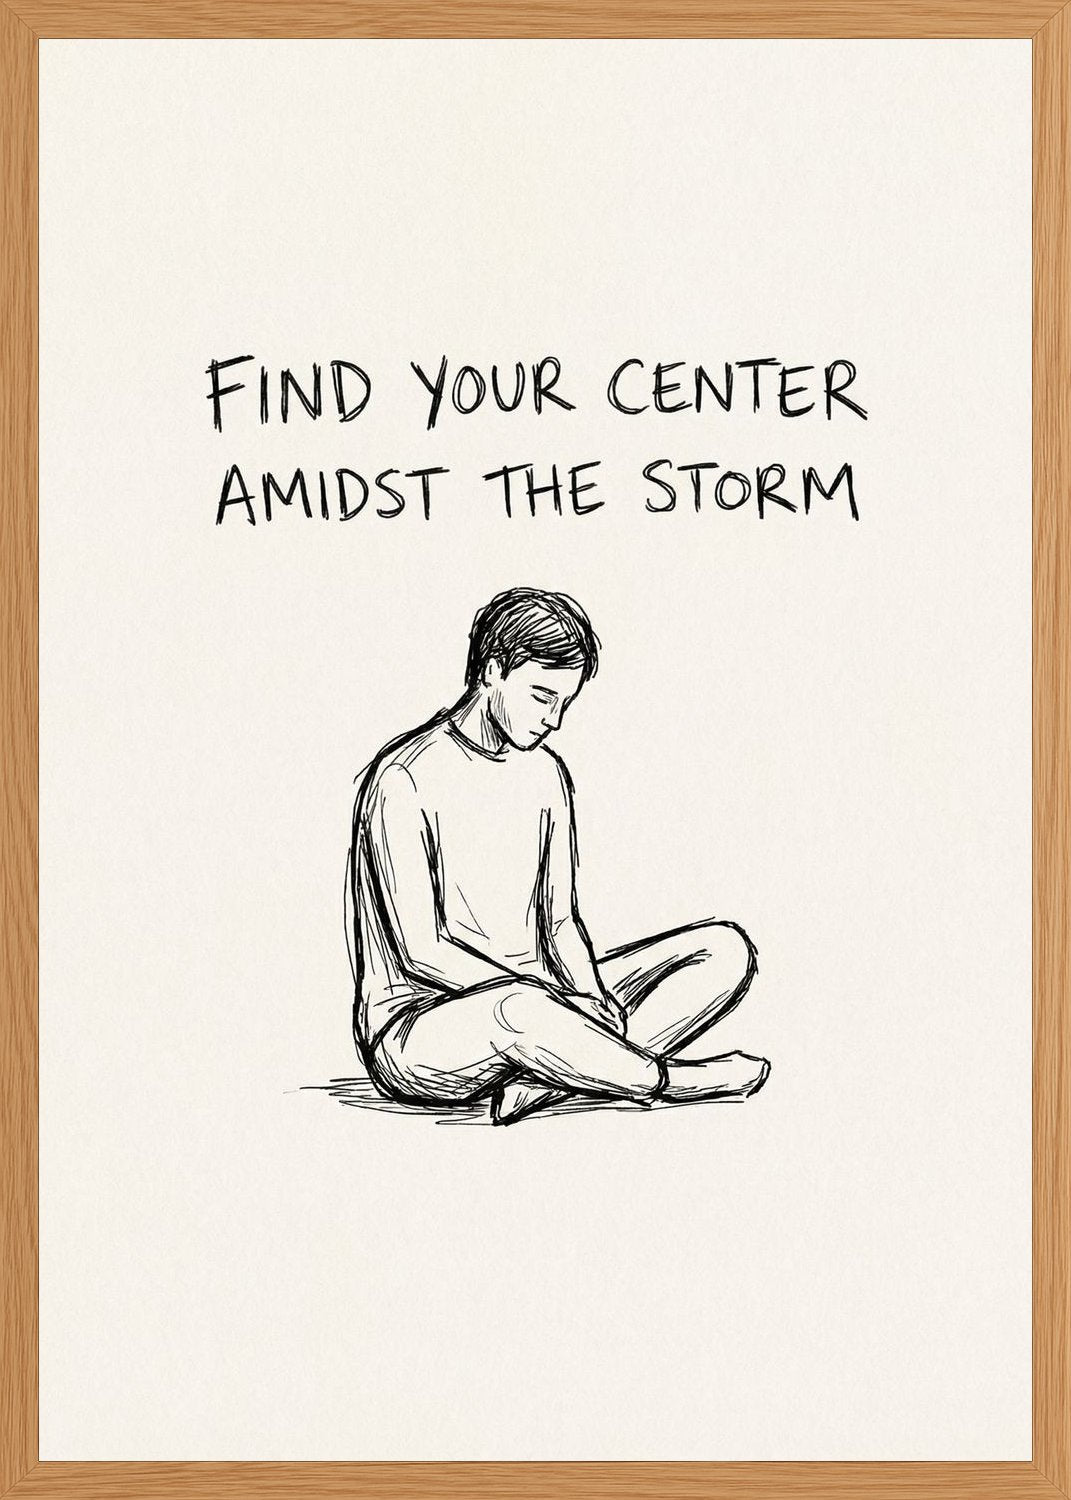 FIND YOUR CENTER
AMIDST THE STORM